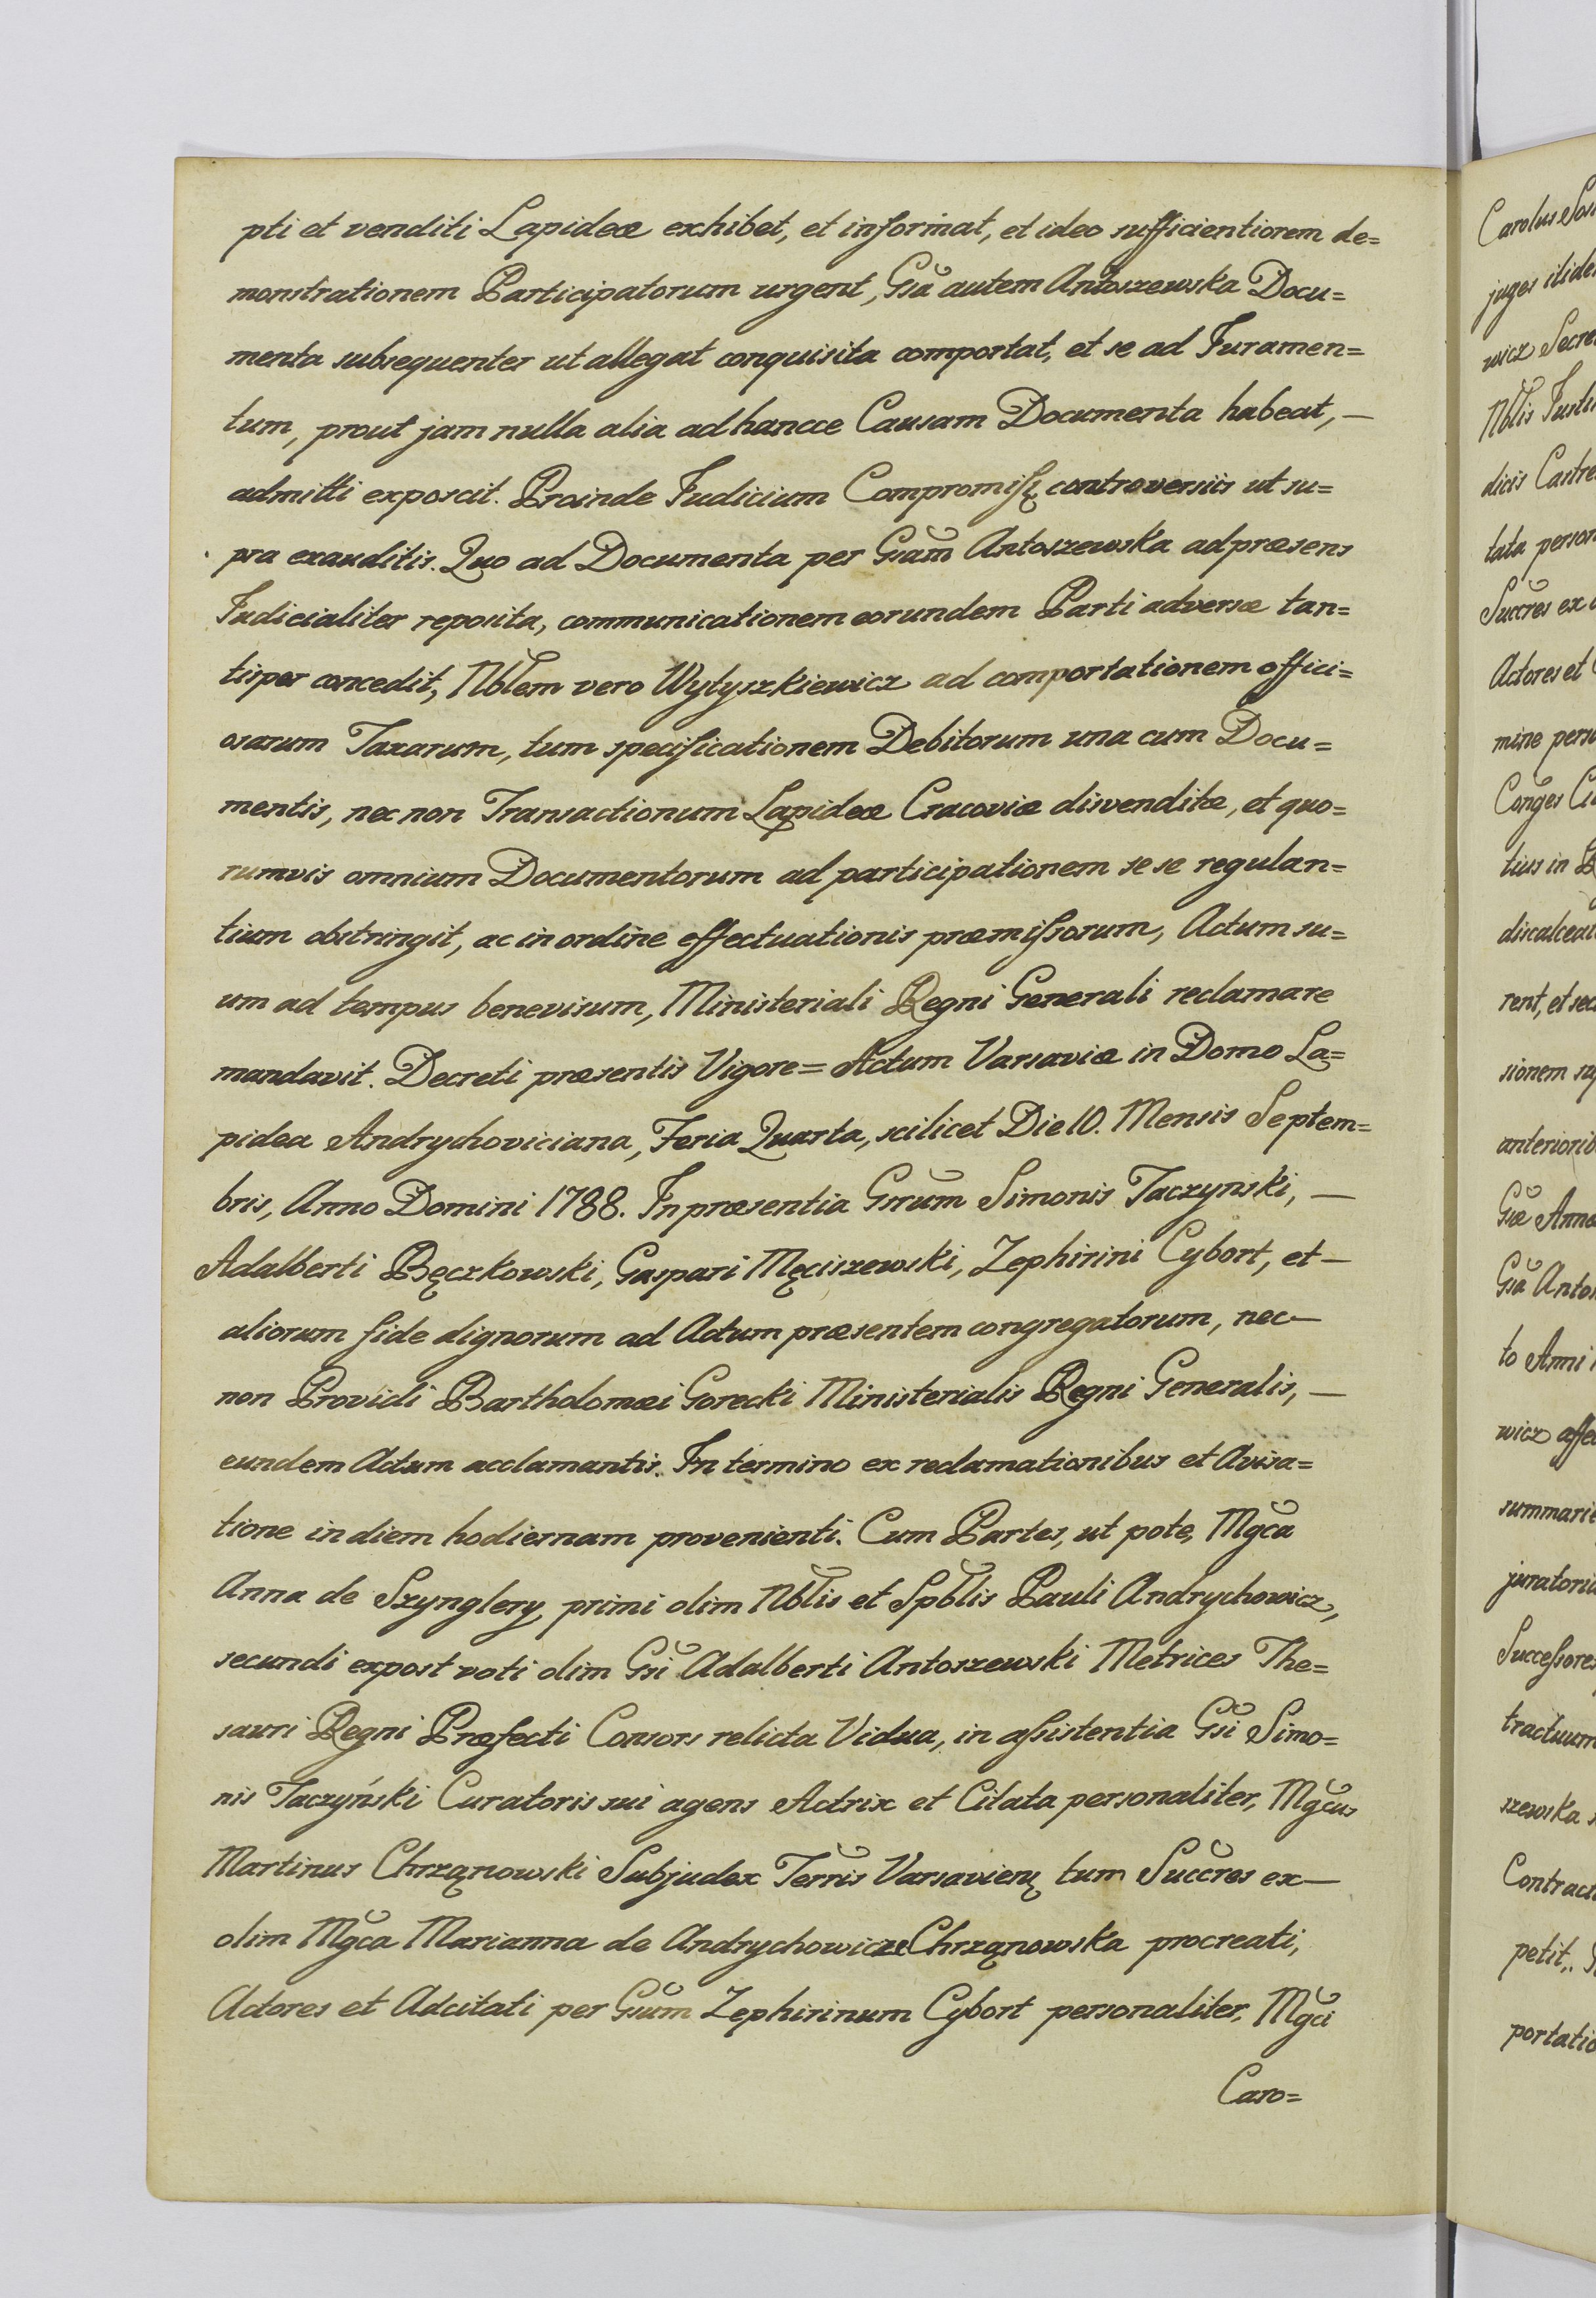 pti et venditi Lapideæ exhibet, et informat, et ideo sufficientiorem de=
monstrationem Participatorum urgent, Gsa autem Antoszewska Docu=
menta subsequenter ut allegat conquisita comportat, et se ad Juramen=
tum, prout jam nulla alia ad hancce Causam Documenta habeat, —
admitti exposcit. Proinde Judicium Compromiss controversiis ut su=
pra exauditis. Quo ad Documenta per Gsam Antoszewska ad præsens
Judicialiter reposita, communicationem eorundem Parti adversæ tan=
tisper concedit, Nblem vero Wytyszkiewicz ad comportationem offici=
osarum Taxarum, tum specificationem Debitorum una cum Docu=
mentis, nec non Transactionum Lapideæ Cracoviæ divenditæ, et quo=
rumvis omnium Documentorum ad participationem sese regulan=
tium obstringit, ac in ordine effectuationis præmissorum, Actum su=
um ad tempus benevisum, Ministeriali Regni Generali reclamare
mandavit. Decreti præsentis Vigore= Actum Varsaviæ in Domo La=
pidea Andrychoviciana, Feria Quarta, scilicet Die 10. Mensis Septem=
bris, Anno Domini 1788. In præsentia Grrum Simonis Taczynski, —
Adalberti Bęczkowski, Gaspari Męciszewski, Zephirini Cybort, et —
aliorum fide dignorum ad Actum præsentem congregatorum, nec —
non Providi Bartholomæi Gorecki Ministerialis Regni Generalis, —
eundem Actum acclamantis. In termino ex reclamationibus et Avisa=
tione in diem hodiernam provenienti. Cum Partes, ut pote, Mgca
Anna de Szynglery, primi olim Nblis et Spblis Pauli Andrychowicz,
secundi expost voti olim Gsi Adalberti Antoszewski Metrices The=
sauri Regni Præfecti Consors relicta Vidua, in assistentia Gsi Simo=
nis Taczyński Curatoris sui agens Actrix et Citata personaliter, Mgcus
Martinus Chrząnowski Subjudex Terris Varsavien tum Succres ex —
olim Mgca Marianna de Andrychowicze Chrząnowska procreati,
Actores et Adcitati per Gsum Zephirinum Cybort personaliter, Mgci
Caro=